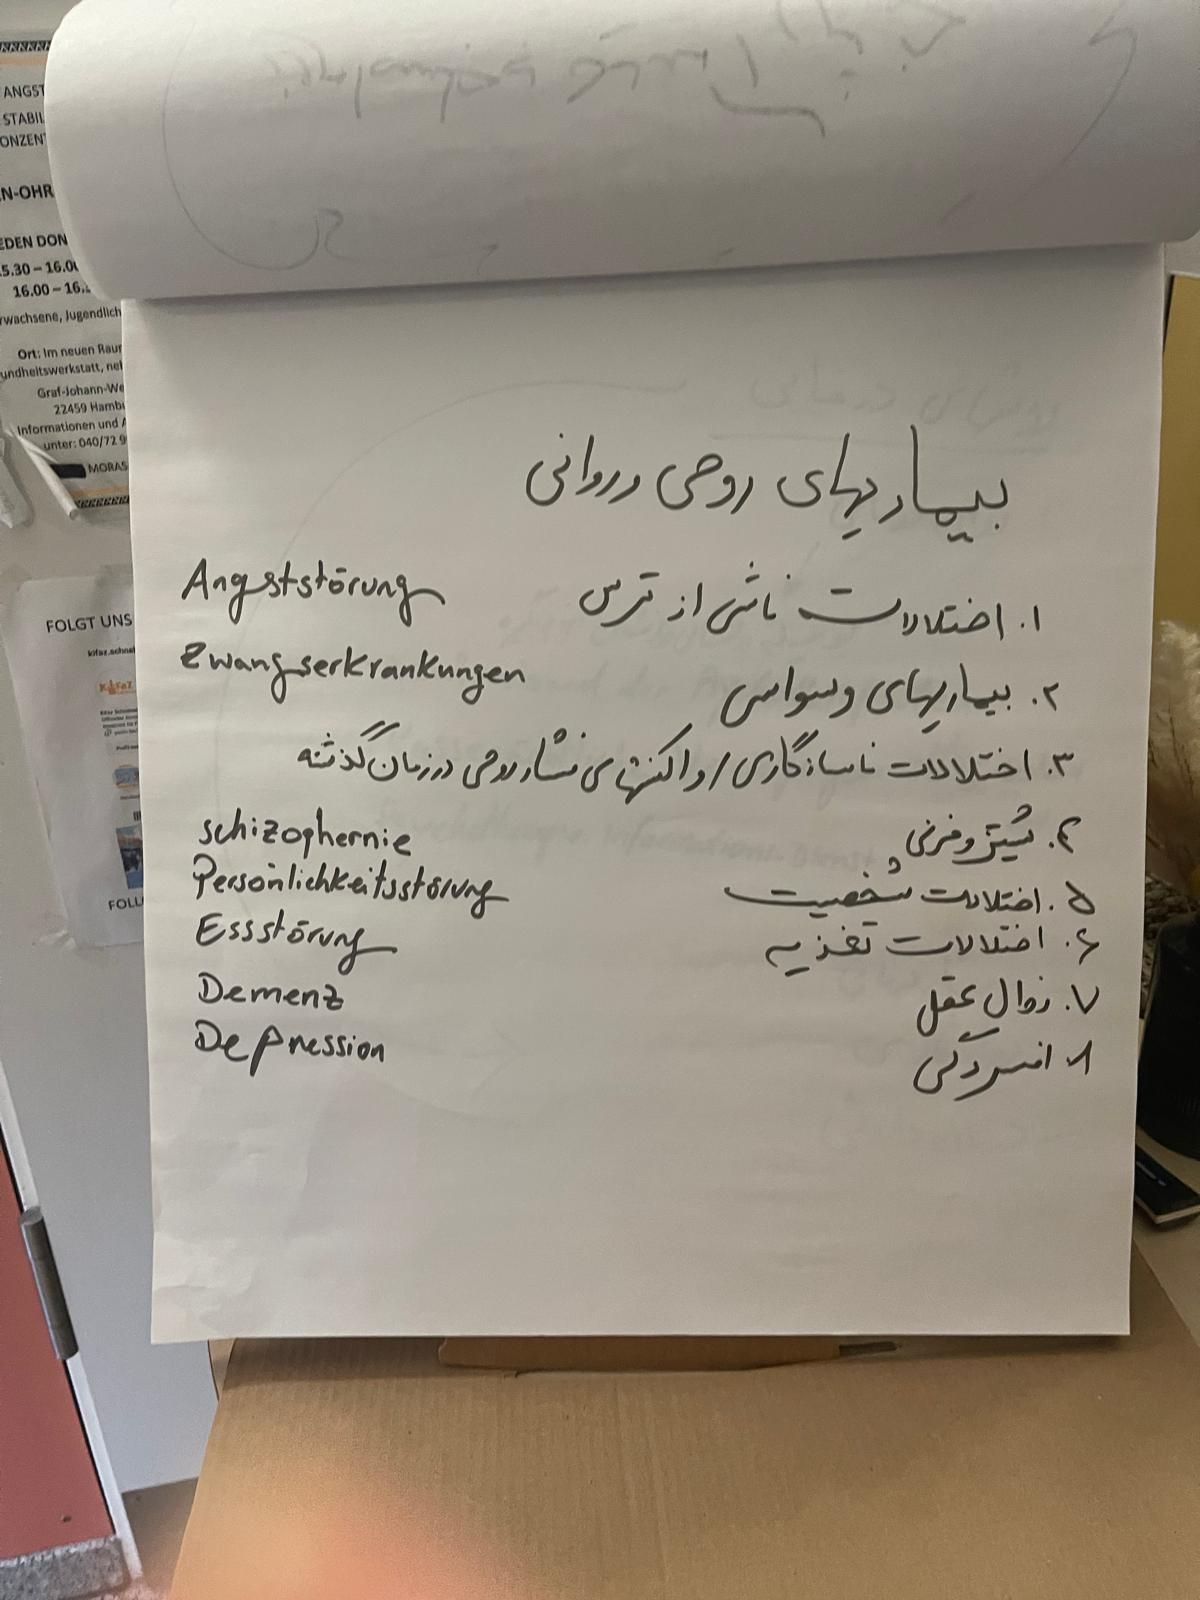 ANGST
STABIL
ONZENT
N-OHR
EDEN DON
5.30 – 16.00
16.00 – 16.
rwachsene, Jugendlich
Ort: Im neuen Raum
undheitswerkstatt, nel
Graf-Johann-We
22459 Hambu
Informationen und A
unter: 040/72 9
MORAS
FOLGT UNS
kifaz.schnel
FOLL
بیماریهای روحی و روانی
۱. اختلالات ناشی از ترس Angststörung
۲. بیماریهای وسواسی Zwangserkrankungen
۳. اختلالات ناسازگاری / واکنشهای فشار روحی در زمان گذشته
۴. شیزوفرنی schizophernie
۵. اختلالات شخصیت Persönlichkeitsstörung
۶. اختلالات تغذیه Essstörung
۷. زوال عقل Demenz
۸. افسردگی Depression